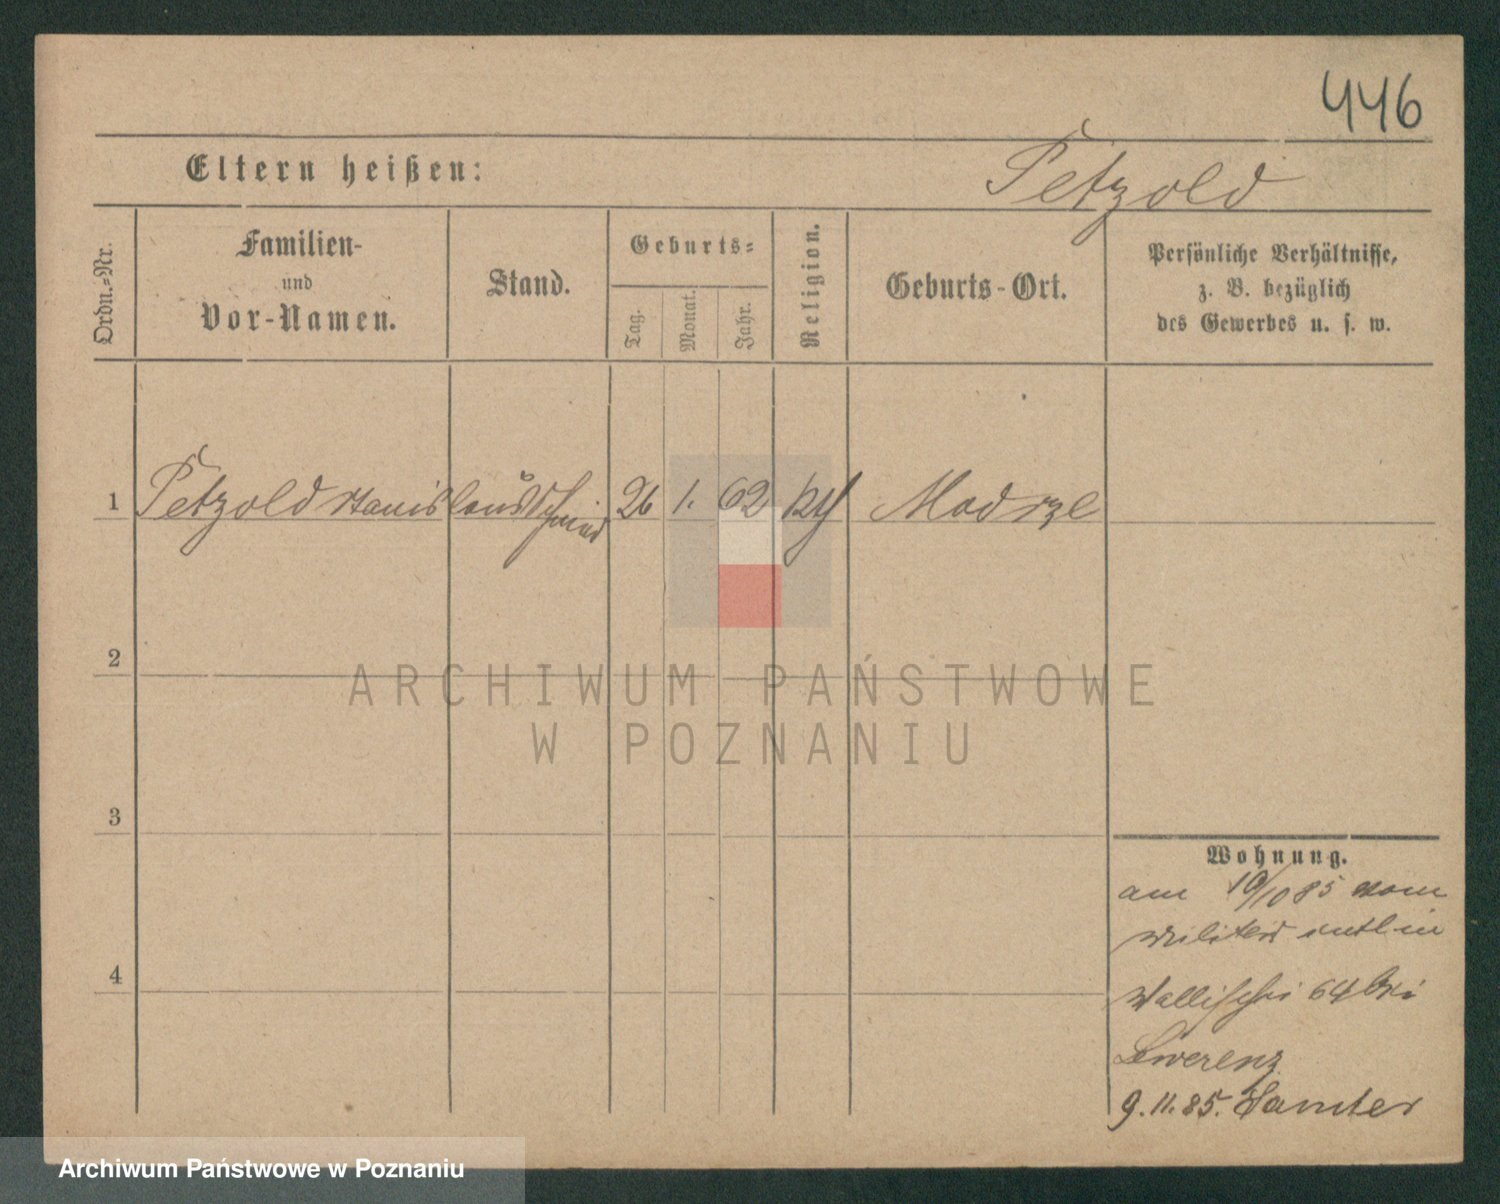 446
Eltern heißen:
Petzold
Ordn.-Nr.
Familien-
und
Vor-Namen.
Stand.
Geburts-
Tag.
Monat.
Jahr.
Religion.
Geburts-Ort.
Persönliche Verhältnisse,
z. B. bezüglich
des Gewerbes u. s. w.
1 Petzold Stanislaus Schmied 26 1. 62 Modrze
2
3
4
ARCHIWUM PAŃSTWOWE
W POZNANIU
Wohnung.
am 10/10 85 vom
Militär
Wallischei 64 bei
Lewerenz
9. 11. 85. Samter
Archiwum Państwowe w Poznaniu